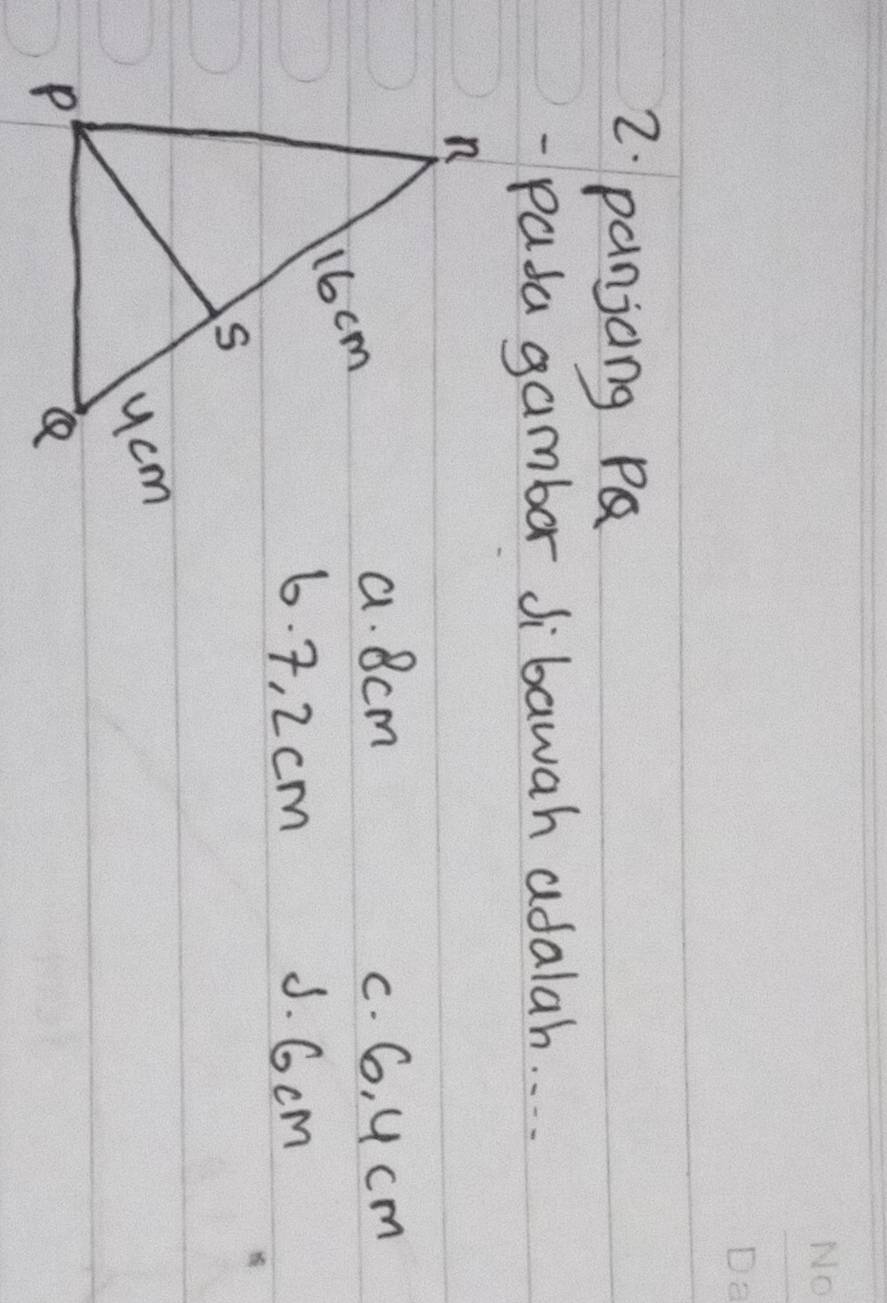 No
Da
2. panjang PQ
- pada gambar di bawah adalah....
R
16 cm
a. 8cm
c. 6,4 cm
S
b. 7,2 cm
d. 6 cm
4 cm
P
Q